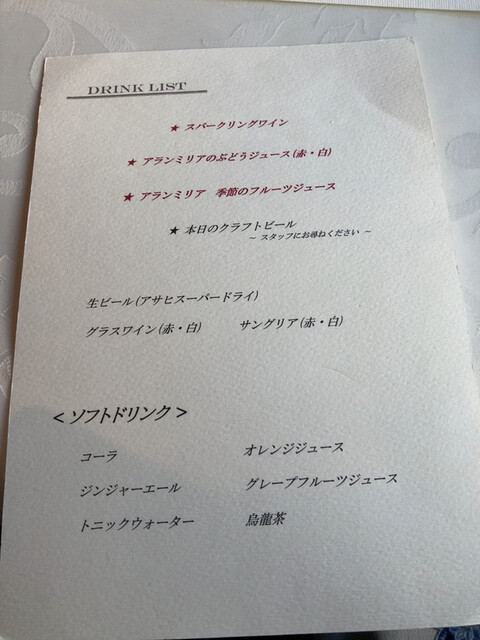 DRINK LIST
★ スパークリングワイン
★ アランミリアのぶどうジュース(赤・白)
★ アランミリア 季節のフルーツジュース
★ 本日のクラフトビール
～ スタッフにお尋ねください ～
生ビール(アサヒスーパードライ)
グラスワイン(赤・白) サングリア(赤・白)
＜ソフトドリンク＞
コーラ オレンジジュース
ジンジャーエール グレープフルーツジュース
トニックウォーター 烏龍茶